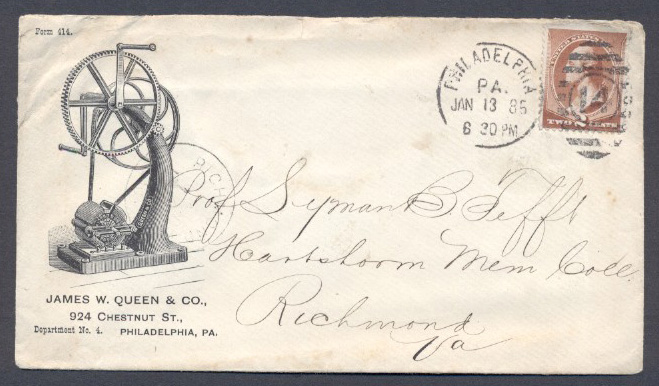 Form 414.
PHILADELPHIA
PA.
JAN 13 85
6 30 PM
14
TWO 2 CENTS
RICH
Prof. Lyman B. Tefft
Hartshorn Mem Coll.
Richmond
Va
JAMES W. QUEEN & CO.,
924 CHESTNUT ST.,
Department No. 4. PHILADELPHIA, PA.